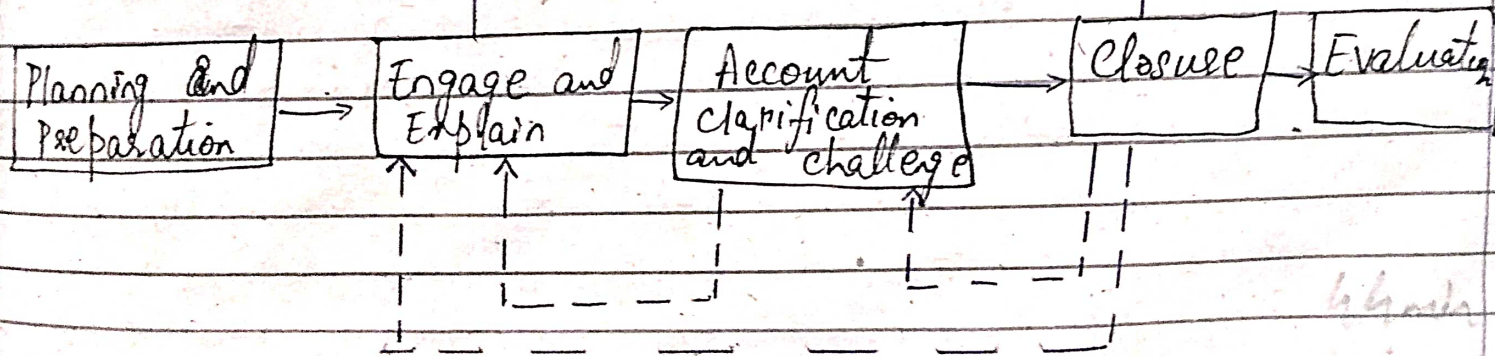 Planning and
Preparation
Engage and
Explain
Account
clarification
and challenge
Closure
Evaluation